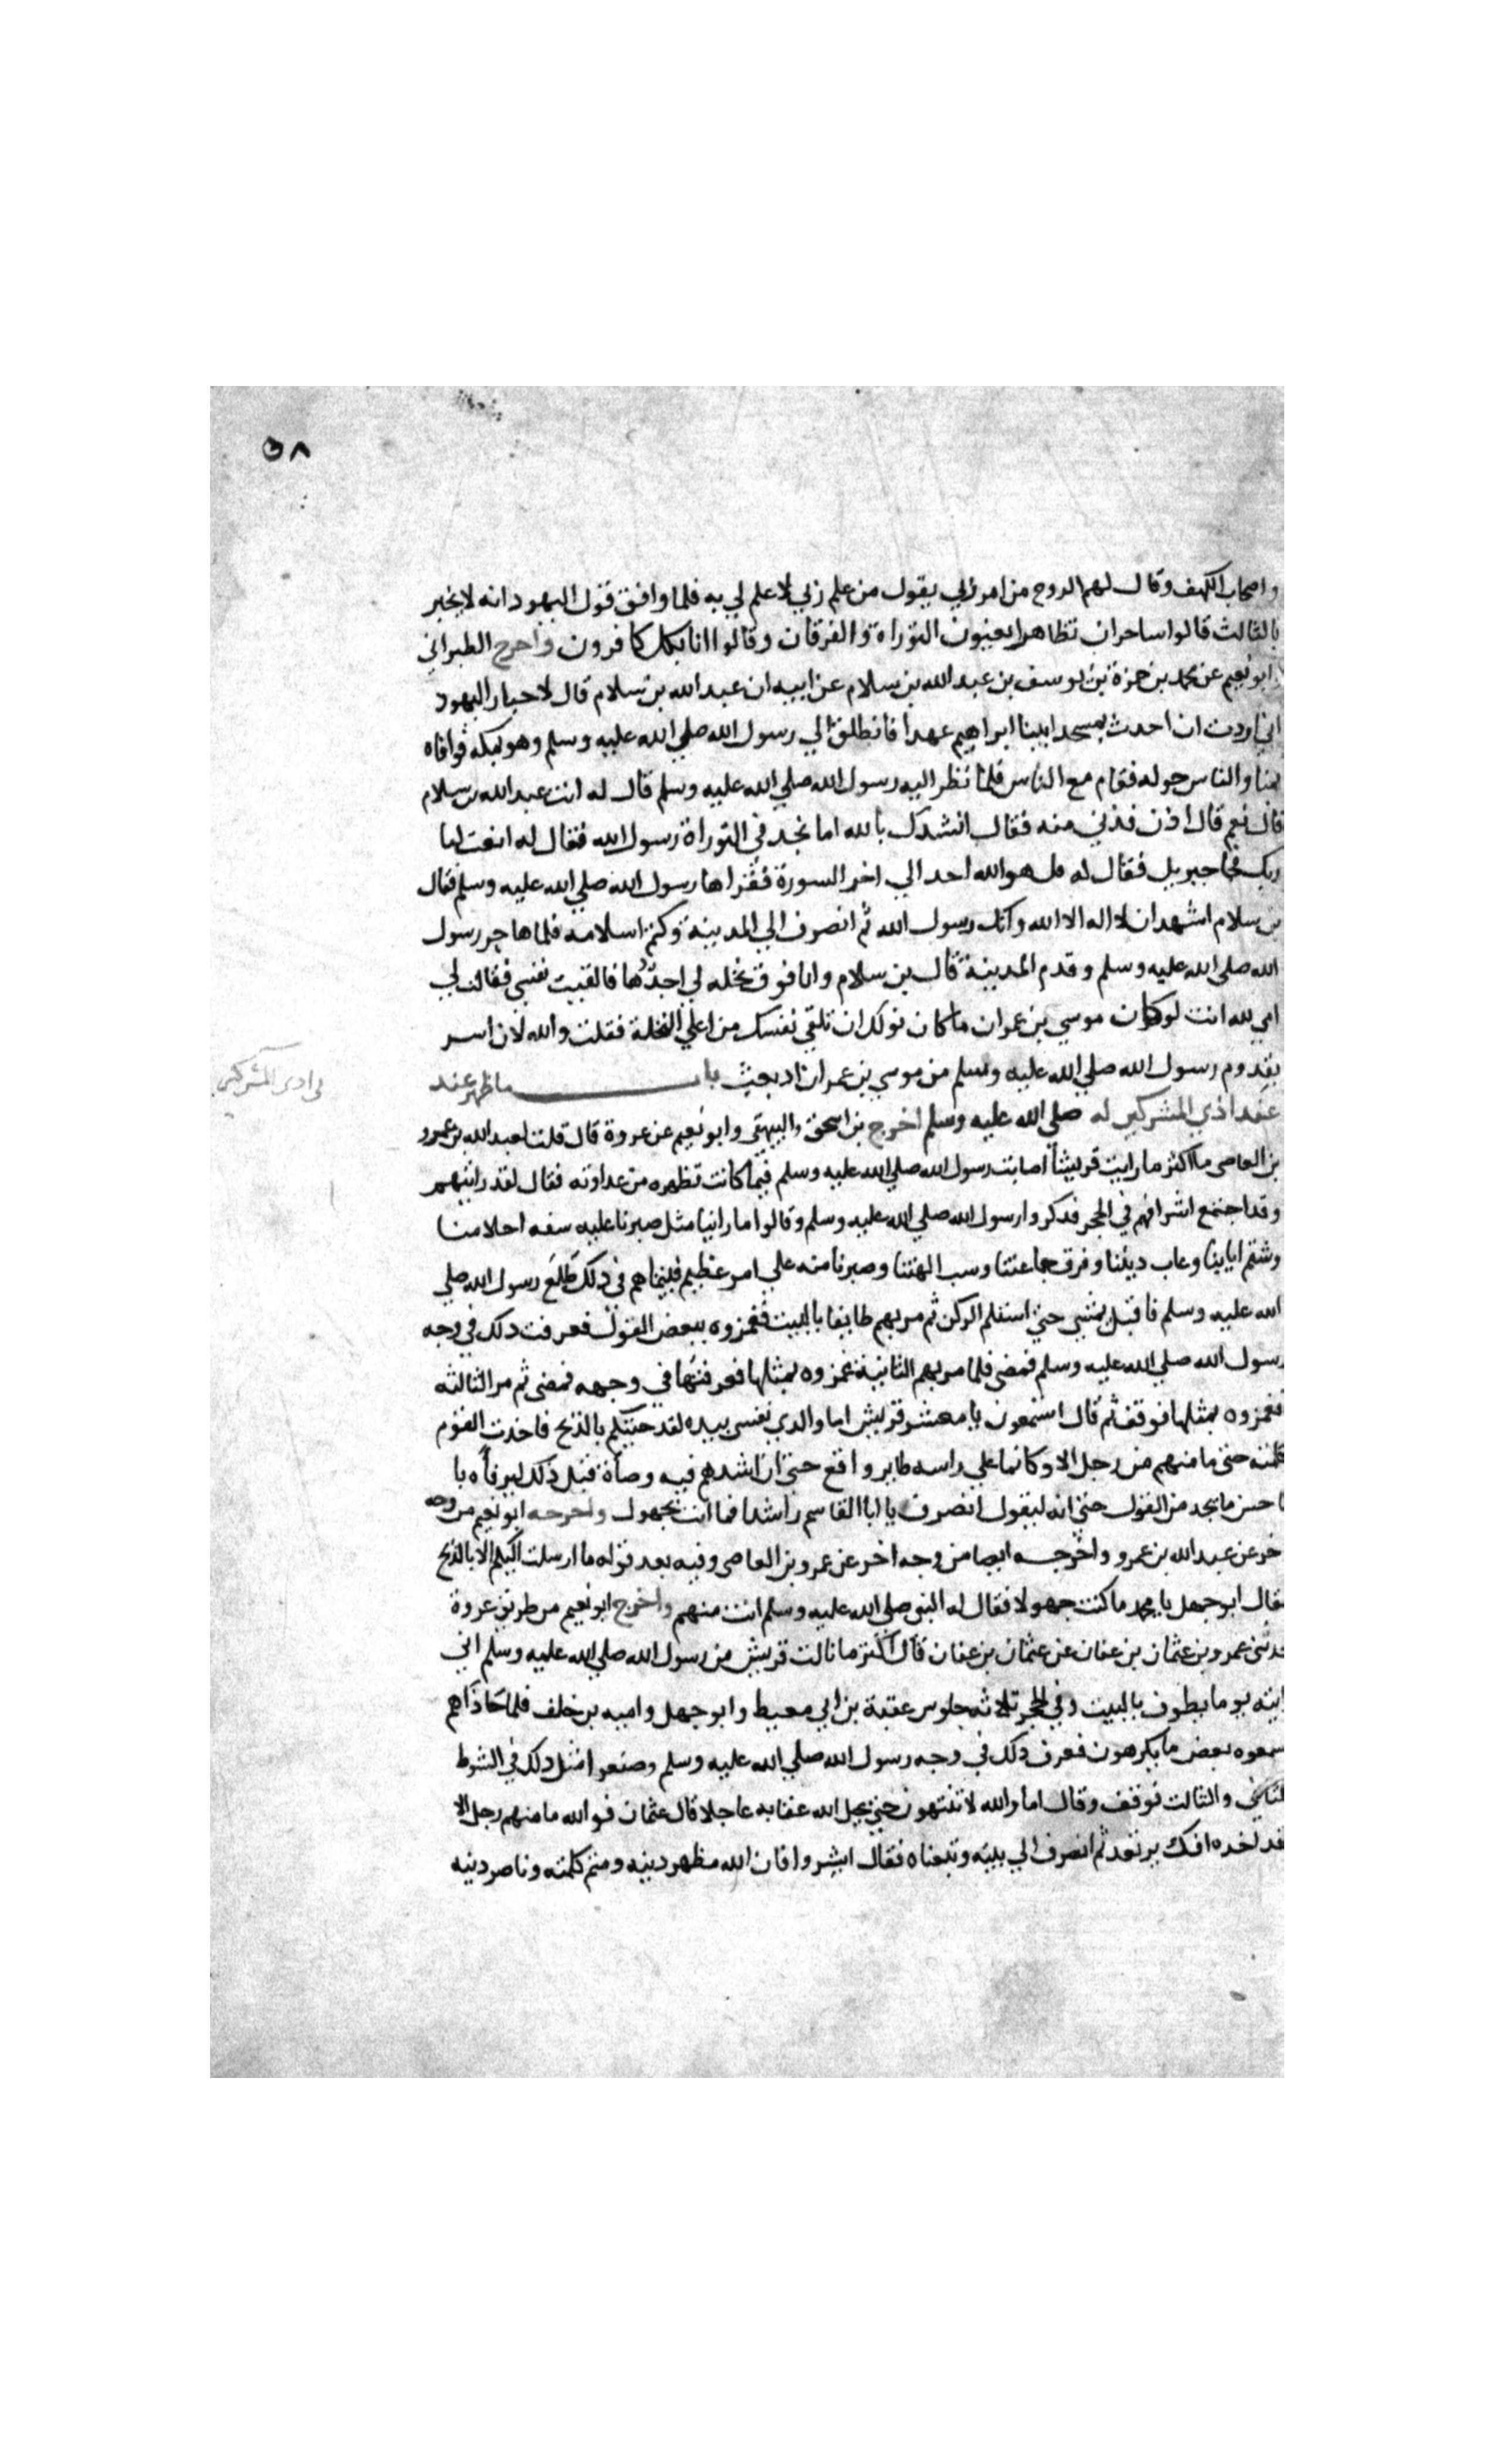 ٥٨
واصحاب الكهف وقال لهم الروح من امر ربي يقول من علم ربي لا علم لي به فلما وافق قول اليهود انه لا يخبر
بالثالث قالوا ساحران تظاهرا يعنون التوراة والفرقان وقالوا انا بكل كافرون واخرج الطبراني
وابو نعيم عن محمد بن حمزة بن يوسف بن عبد الله بن سلام عن ابيه ان عبد الله بن سلام قال لاحبار اليهود
اني اردت ان احدث بمسجد ابينا ابراهيم عهدا فانطلق الي رسول الله صلي الله عليه وسلم وهو بمكه فوافاه
بمنا والناس حوله فقام مع الناس فلما نظر اليه رسول الله صلي الله عليه وسلم قال له انت عبد الله بن سلام
قال نعم قال ادن فدني منه فقال انشدك بالله اما تجد في التوراة رسول الله فقال له انعت لنا
ربك فجا جبريل فقال له قل هو الله احد الي اخر السورة فقراها رسول الله صلي الله عليه وسلم فقال
بن سلام اشهد ان لا اله الا الله وانك رسول الله ثم انصرف الي المدينة وكتم اسلامه فلما هاجر رسول
الله صلي الله عليه وسلم وقدم المدينة قال بن سلام وانا فوق نخله لي اجدها فالقيت نفسي فقالت لي
امي لله انت لو كان موسي بن عمران ما كان نولك ان تلقي نفسك من اعلي النخلة فقلت والله لان اسر
بقدوم رسول الله صلي الله عليه وسلم من موسي بن عمران اذ بعث باب ما ظهر عند
عند اذي المشركين له صلي الله عليه وسلم اخرج بن اسحق والبيهقي وابو نعيم عن عروة قال قلت لعبد الله بن عمرو
في اذى المشركين
بن العاصي ما اكثر ما رايت قريشا اصابت رسول الله صلي الله عليه وسلم فيما كانت تظهره من عداوته فقال لقد رايتهم
وقد اجتمع اشرافهم في الحجر فذكروا رسول الله صلي الله عليه وسلم وقالوا ما راينا مثل صبرنا عليه سفه احلامنا
وشتم اباينا وعاب ديننا وفرق جماعتنا وسب الهتنا وصبرنا منه علي امر عظيم فبيناهم في ذلك طلع رسول الله صلي
الله عليه وسلم فاقبل يمشي حتي استلم الركن ثم مر بهم طايفا بالبيت فغمزوه ببعض القول فعرفت ذلك في وجه
رسول الله صلي الله عليه وسلم فمضى فلما مر بهم الثانية غمزوه بمثلها فعرفتها في وجهه فمضى ثم مر الثالثه
فغمزوه بمثلها فوقف ثم قال اتسمعون يا معشر قريش اما والذي نفسي بيده لقد جيتكم بالذبح فاخذت القوم
كلمته حتى ما منهم من رجل الا وكانما علي راسه طاير واقع حتى ان اشدهم فيه وصاة قبل ذلك ليرفأه با
باحسن ما يجد من القول حتي انه ليقول انصرف يا ابا القاسم راشدا فما انت بجهول واخرجه ابو نعيم من وجه
اخر عن عبد الله بن عمرو واخرجه ايضا من وجه اخر عن عمرو بن العاصي وفيه بعد قوله ما ارسلت اليكم الا بالذبح
فقال ابو جهل يا محمد ما كنت جهولا فقال له النبي صلي الله عليه وسلم انت منهم واخرج ابو نعيم من طريق عروة
حدثني عمرو بن عثمان بن عفان عن عثمان بن عفان قال اكثر ما نالت قريش من رسول الله صلي الله عليه وسلم اني
رايته يوما يطوف بالبيت وفي الحجر ثلاثه جلوس عقبة بن ابي معيط وابو جهل واميه بن خلف فلما حاذاهم
اسمعوه بعض ما يكرهون فعرف ذلك في وجه رسول الله صلي الله عليه وسلم وصنعوا مثل ذلك في الشوط
الثاني والثالث فوقف وقال اما والله لا تنتهون حتي يحل الله عقابه عاجلا قال عثمان فوالله ما منهم رجل الا
وقد اخذه افكل يرتعد ثم انصرف الي بيته وتبعناه فقال ابشروا فان الله مظهر دينه ومتم كلمته وناصر دينه